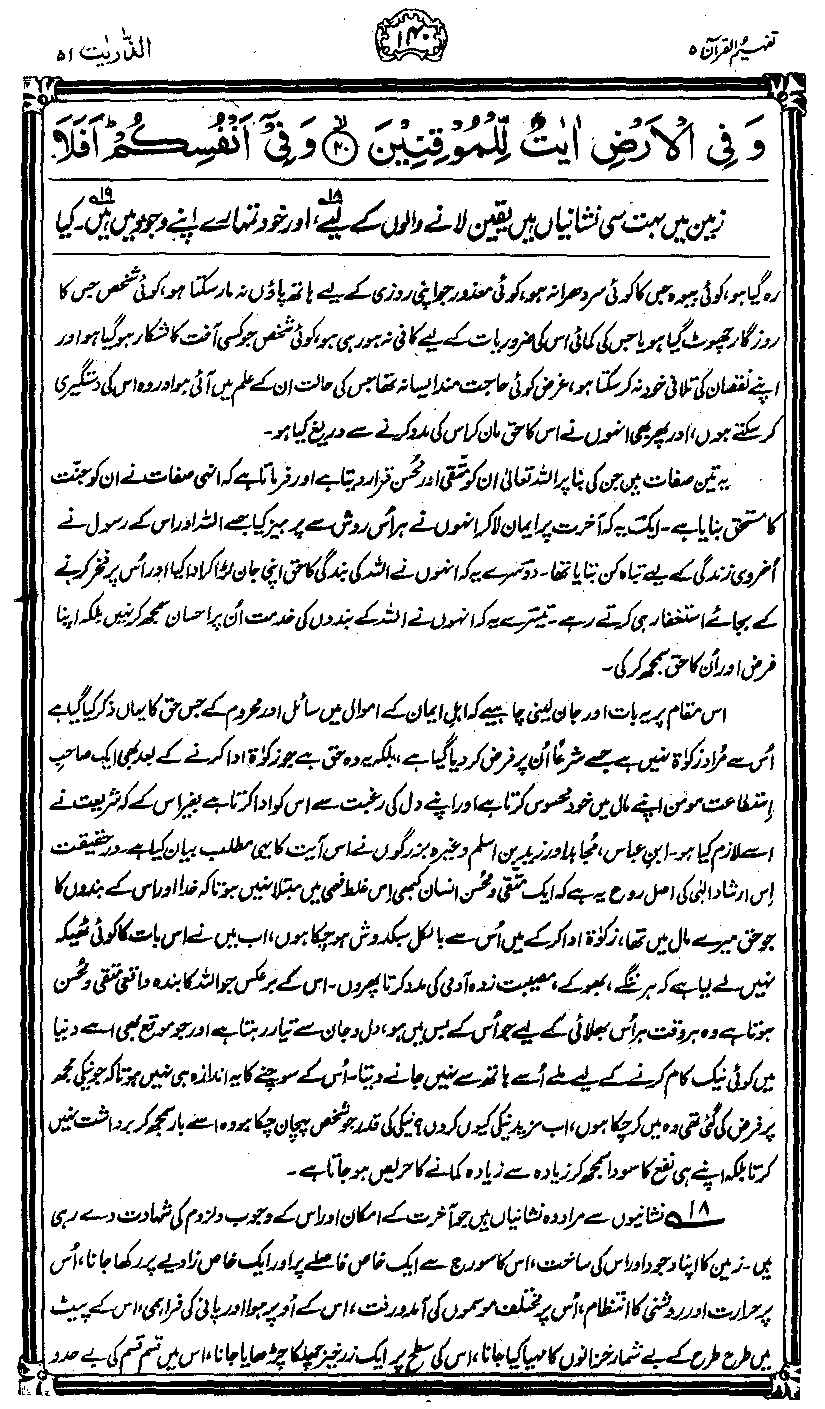 تفہیم القرآن ۵
۱۴۰
الذّٰریٰت ۵۱
وَ فِی الْاَرْضِ اٰیٰتٌ لِّلْمُوْقِنِیْنَ ﴿۲۰﴾ وَ فِیْٓ اَنْفُسِكُمْ ؕ اَفَلَا
زمین میں بہت سی نشانیاں ہیں یقین لانے والوں کے لیے۱۸، اور خود تمہارے اپنے وجود میں ہیں۱۹۔ کیا
رہ گیا ہو، کوئی بیوہ جس کا کوئی سردھرا نہ ہو، کوئی معذور جو اپنی روزی کے لیے ہاتھ پاؤں نہ مار سکتا ہو، کوئی شخص جس کا
روزگار چھوٹ گیا ہو یا جس کی کمائی اس کی ضروریات کے لیے کافی نہ ہو رہی ہو، کوئی شخص جو کسی آفت کا شکار ہو گیا ہو اور
اپنے نقصان کی تلافی خود نہ کر سکتا ہو، غرض کوئی حاجت مند ایسا نہ تھا جس کی حالت ان کے علم میں آئی ہو اور وہ اس کی دستگیری
کر سکتے ہوں، اور پھر بھی انہوں نے اس کا حق مان کر اس کی مدد کرنے سے دریغ کیا ہو۔
یہ تین صفات ہیں جن کی بنا پر اللہ تعالیٰ ان کو متقی اور محسن قرار دیتا ہے اور فرماتا ہے کہ انہی صفات نے ان کو جنت
کا مستحق بنایا ہے۔ ایک یہ کہ آخرت پر ایمان لا کر انہوں نے ہر اُس روش سے پرہیز کیا جسے اللہ اور اس کے رسول نے
اُخروی زندگی کے لیے تباہ کن بتایا تھا۔ دوسرے یہ کہ انہوں نے اللہ کی بندگی کا حق اپنی جان لڑا کر ادا کیا اور اُس پر فخر کرنے
کے بجائے استغفار ہی کرتے رہے۔ تیسرے یہ کہ انہوں نے اللہ کے بندوں کی خدمت اُن پر احسان سمجھ کر نہیں بلکہ اپنا
فرض اور اُن کا حق سمجھ کر کی۔
اس مقام پر یہ بات اور جان لینی چاہیے کہ اہلِ ایمان کے اموال میں سائل اور محروم کے جس حق کا یہاں ذکر کیا گیا ہے
اُس سے مُراد زکوٰۃ نہیں ہے جسے شرعاً اُن پر فرض کر دیا گیا ہے، بلکہ یہ وہ حق ہے جو زکوٰۃ ادا کرنے کے بعد بھی ایک صاحبِ
استطاعت مومن اپنے مال میں خود محسوس کرتا ہے اور اپنے دل کی رغبت سے اس کو ادا کرتا ہے بغیر اس کے کہ شریعت نے
اسے لازم کیا ہو۔ ابنِ عباس، مُجاہد اور زید بن اسلم وغیرہ بزرگوں نے اس آیت کا یہی مطلب بیان کیا ہے۔ درحقیقت
اِس ارشادِ الٰہی کی اصل روح یہ ہے کہ ایک متقی و محسن انسان کبھی اِس غلط فہمی میں مبتلا نہیں ہوتا کہ خدا اور اس کے بندوں کا
جو حق میرے مال میں تھا، زکوٰۃ ادا کر کے میں اُس سے بالکل سبکدوش ہو چکا ہوں، اب میں نے اس بات کا کوئی ٹھیکہ
نہیں لے لیا ہے کہ ہر ننگے، بھوکے، مصیبت زدہ آدمی کی مدد کرتا پھروں۔ اس کے برعکس جو اللہ کا بندہ واقعی متقی و محسن
ہوتا ہے وہ ہر وقت ہر اُس بھلائی کے لیے جو اُس کے بس میں ہو، دل و جان سے تیار رہتا ہے اور جو موقع بھی اسے دنیا
میں کوئی نیک کام کرنے کے لیے ملے اُسے ہاتھ سے نہیں جانے دیتا۔ اُس کے سوچنے کا یہ اندازہ ہی نہیں ہوتا کہ جو نیکی مجھ
پر فرض کی گئی تھی وہ میں کر چکا ہوں، اب مزید نیکی کیوں کروں؟ نیکی کی قدر جو شخص پہچان چکا ہو وہ اسے بار سمجھ کر برداشت نہیں
کرتا بلکہ اپنے ہی نفع کا سودا سمجھ کر زیادہ سے زیادہ کمانے کا حریص ہو جاتا ہے۔
۱۸ نشانیوں سے مراد وہ نشانیاں ہیں جو آخرت کے امکان اور اس کے وجوب و لزوم کی شہادت دے رہی
ہیں۔ زمین کا اپنا وجود اور اس کی ساخت، اس کا سورج سے ایک خاص فاصلے پر اور ایک خاص زاویے پر رکھا جانا، اُس
پر حرارت اور روشنی کا انتظام، اُس پر مختلف موسموں کی آمد و رفت، اس کے اوپر ہوا اور پانی کی فراہمی، اس کے پیٹ
میں طرح طرح کے بے شمار خزانوں کا مہیا کیا جانا، اس کی سطح پر ایک زرخیز چھلکا چڑھایا جانا، اس میں قسم قسم کی بے حدو